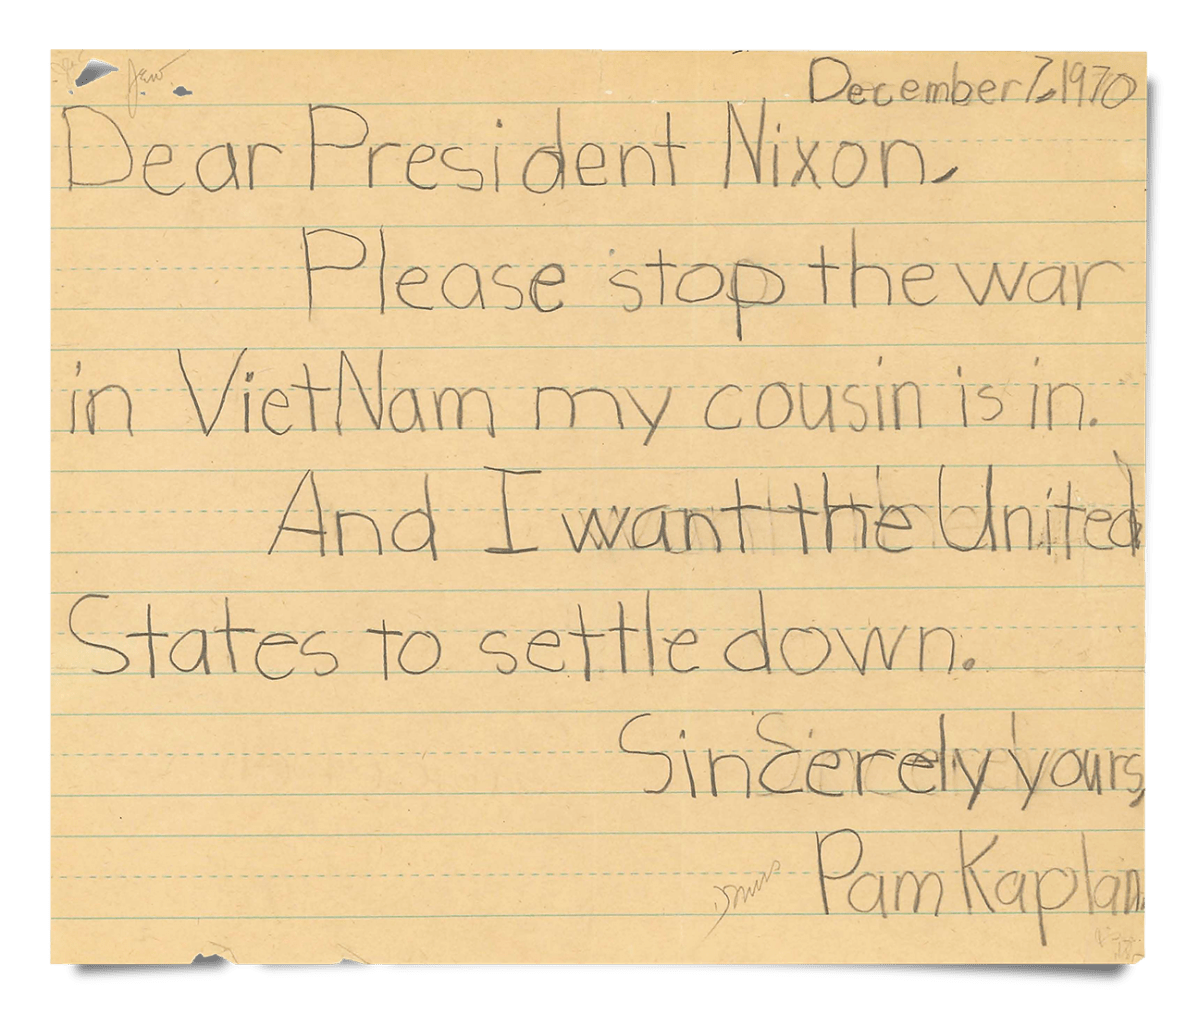 December 7, 1970
Dear President Nixon,
Please stop the war
in VietNam my cousin is in.
And I want the United
States to settle down.
Sincerely yours,
Pam Kaplan